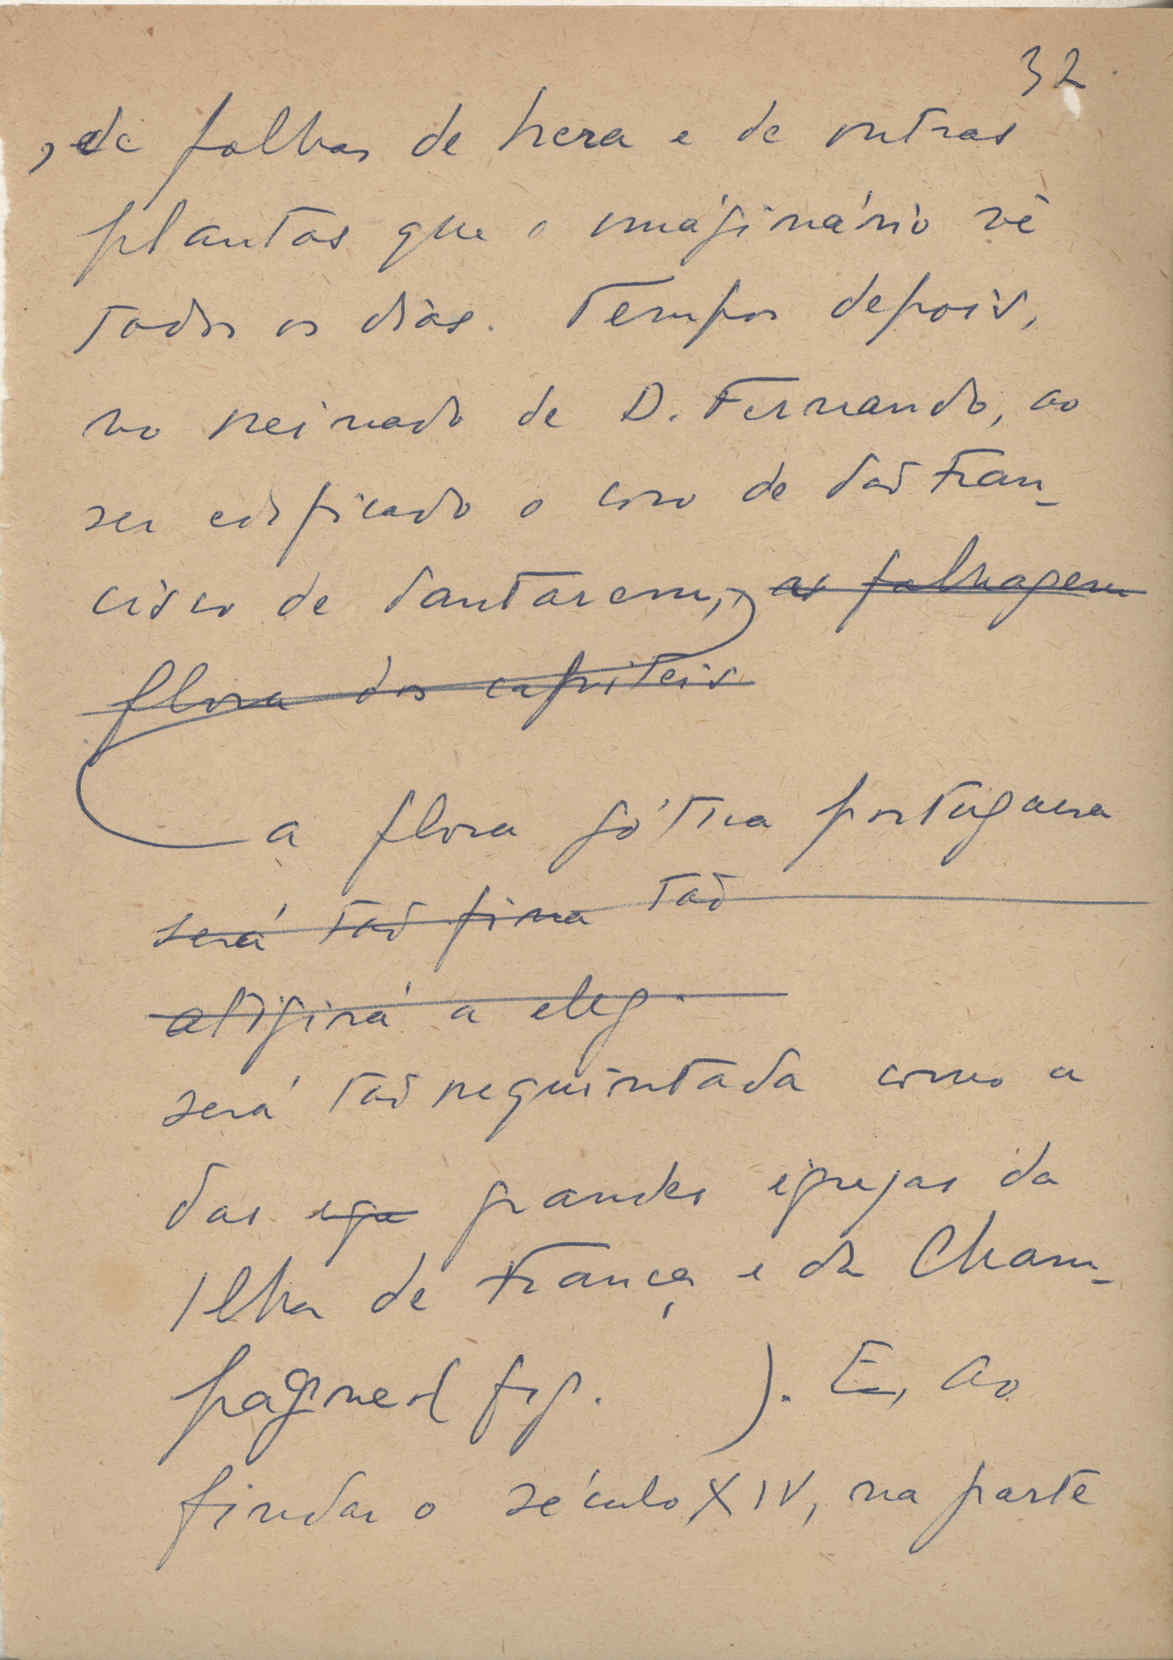 32
, de folhas de hera e de outras
plantas que o imáginário vê
todos os dias. Tempos depois,
no reinado de D. Fernando, ao
ser edificado o coro de São Fran-
cisco de Santarem, as folhagem
flora dos capiteis
a flora gótica portuguesa
será tão fina tão
atigirá a eleg.
será tão requintada como a
das igr grandes igrejas da
Ilha de França e da Cham-
pagne ( fig. ). E, ao
findar o século XIV, na parte